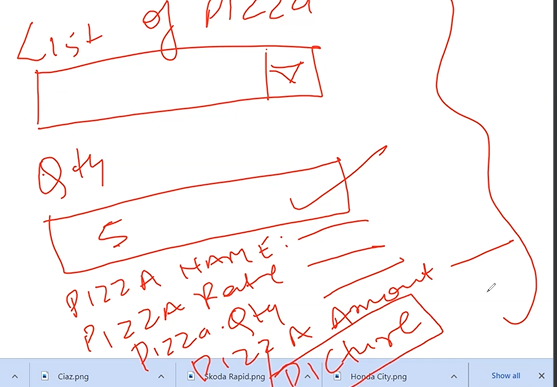 List of Pizza
Qty
5
PIZZA NAME:
PIZZA Rate
Pizza Qty
PIZZA Amount
PICture
Ciaz.png
Skoda Rapid.png
Honda City.png
Show all